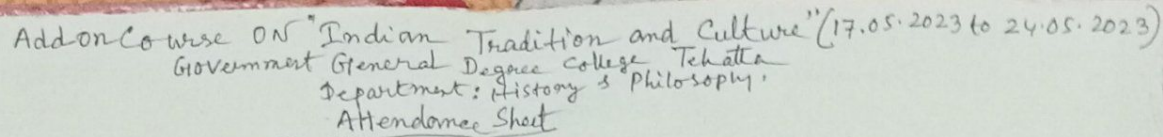 Add on Course ON "Indian Tradition and Culture" (17.05.2023 to 24.05.2023)
Government General Degree College Tehatta
Department: History & Philosophy.
Attendance Sheet